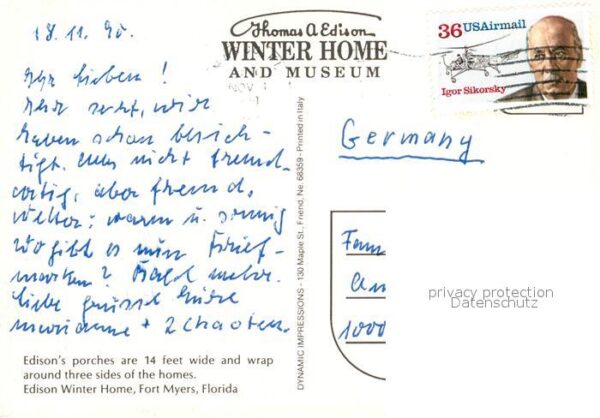 18.11.90.
Thomas A Edison
WINTER HOME
AND MUSEUM
36 USAirmail
Igor Sikorsky
NOV
Ihr Lieben!
wir
haben schon besich-
tigt. nicht fremd-
artig, aber fremd.
Wetter: warm u. sonnig
Wo gibt es nun Brief-
marken? Bald mehr.
Liebe Grüsse Eure
Marianne + 2 Chaoten.
Edison's porches are 14 feet wide and wrap
around three sides of the homes.
Edison Winter Home, Fort Myers, Florida
DYNAMIC IMPRESSIONS - 130 Maple St., Friend, Ne. 68359 - Printed in Italy
Germany
Fam
An
1000
privacy protection
Datenschutz